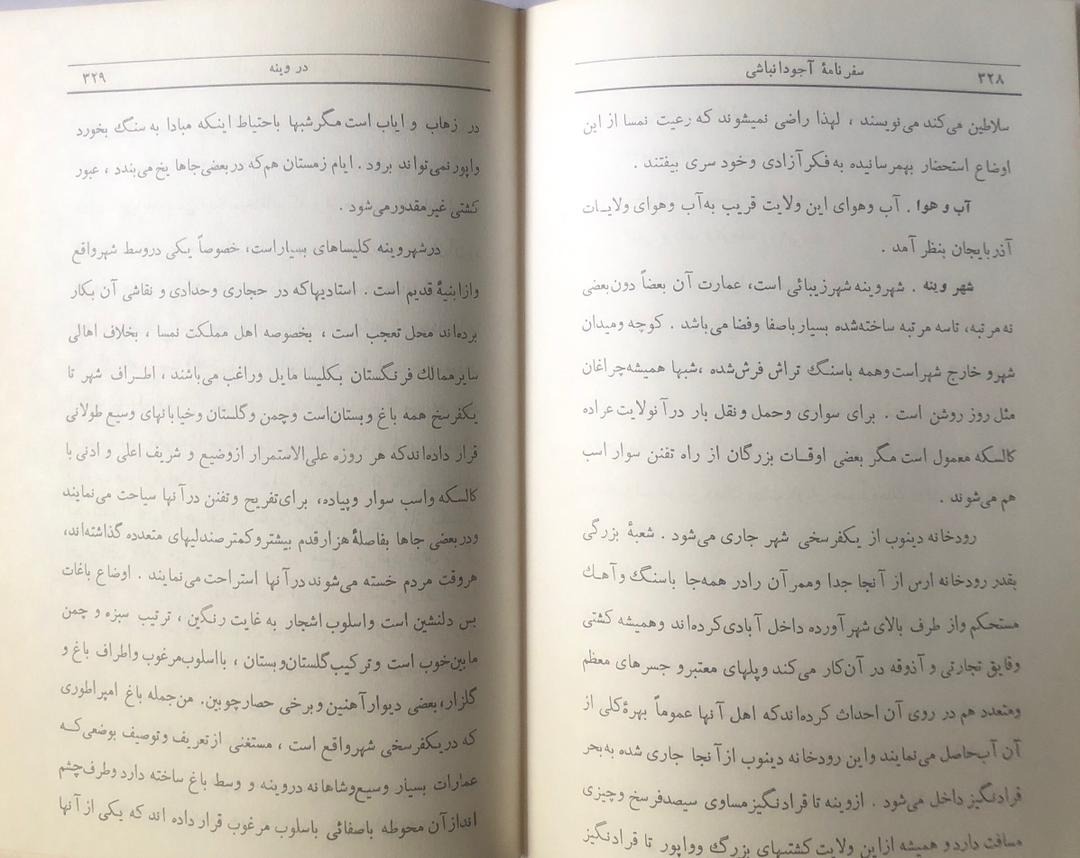 ۳۲۸
سفرنامهٔ آجودانباشی
سلاطین می‌کند می‌نویسند ، لهذا راضی نمیشوند که رعیت نمسا از این
اوضاع استحضار بهمرسانیده به فکر آزادی وخود سری بیفتند .
آب و هوا . آب وهوای این ولایت قریب به‌آب وهوای ولایات
آذربایجان بنظر آمد .
شهر وینه . شهروینه شهرزیبائی است، عمارت آن بعضاً دون‌بعضی
نه‌مرتبه، تاسه مرتبه ساخته‌شده بسیار باصفا وفضا می‌باشد . کوچه ومیدان
شهرو خارج شهراست‌وهمه باسنگ تراش فرش‌شده ،شبها همیشه‌چراغان
مثل روز روشن است . برای سواری وحمل ونقل بار درآنولایت عراده
کالسکه معمول است مگر بعضی اوقات بزرگان از راه تفنن سوار اسب
هم می‌شوند .
رودخانه دینوب از یکفرسخی شهر جاری می‌شود . شعبهٔ بزرگی
بقدر رودخانه ارس از آنجا جدا وممر آن رادر همه‌جا باسنگ وآهک
مستحکم واز طرف بالای شهر آورده داخل آبادی کرده‌اند وهمیشه کشتی
وقایق تجارتی و آذوقه در آن‌کار می‌کند وپلهای معتبرو جسرهای معظم
ومتعدد هم در روی آن احداث کرده‌اندکه اهل آنها عموماً بهرهٔ‌کلی از
آن آب‌حاصل می‌نمایند واین رودخانه دینوب ازآنجا جاری شده به‌بحر
قرادنگیز داخل می‌شود . ازوینه تا قرادنگیزمساوی سیصدفرسخ وچیزی
مسافت دارد و همیشه ازاین ولایت کشتیهای بزرگ وواپور تا قرادنگیز
در وینه
۳۲۹
در زهاب و ایاب است مگرشبها باحتیاط اینکه مبادا به سنگ بخورد
واپورنمی‌تواند برود . ایام زمستان هم‌که دربعضی‌جاها یخ‌می‌بندد ، عبور
کشتی غیرمقدورمی‌شود .
درشهروینه کلیساهای بسیاراست، خصوصاً یکی دروسط شهرواقع
وازابنیهٔ قدیم است . استادیهاکه در حجاری وحدادی و نقاشی آن بکار
برده‌اند محل تعجب است ، بخصوصه اهل مملکت نمسا ، بخلاف اهالی
سایرممالک فرنگستان بکلیسا مایل وراغب می‌باشند ، اطراف شهر تا
یکفرسخ همه باغ وبستان‌است وچمن وگلستان وخیابانهای وسیع طولانی
قرار داده‌اندکه هر روزه علی‌الاستمرار ازوضیع و شریف اعلی و ادنی با
کالسکه واسب سوار وپیاده، برای‌تفریح وتفنن درآنها سیاحت می‌نمایند
ودربعضی جاها بفاصلهٔ هزارقدم بیشتروکمترصندلیهای متعدده گذاشته‌اند،
هروقت مردم خسته می‌شوند درآنها استراحت می‌نمایند . اوضاع باغات
بس دلنشین است واسلوب اشجار به غایت رنگین ، ترتیب سبزه و چمن
مابین‌خوب است وترکیب‌گلستان‌وبستان ، بااسلوب‌مرغوب واطراف باغ و
گلزار،بعضی دیوارآهنین وبرخی حصارچوبین. من‌جمله باغ امپراطوری
که دریکفرسخی شهرواقع است ، مستغنی ازتعریف وتوصیف بوضعی‌که
عمارات بسیار وسیع‌وشاهانه دروینه و وسط باغ ساخته دارد وطرف‌چشم
اندازآن محوطه باصفائی باسلوب مرغوب قرار داده اند که یکی از آنها